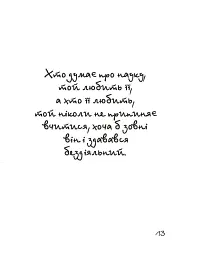 Хто думає про науку,
той любить її,
а хто її любить,
той ніколи не припиняє
вчитися, хоча б зовні
він і здавався
бездіяльний.
13